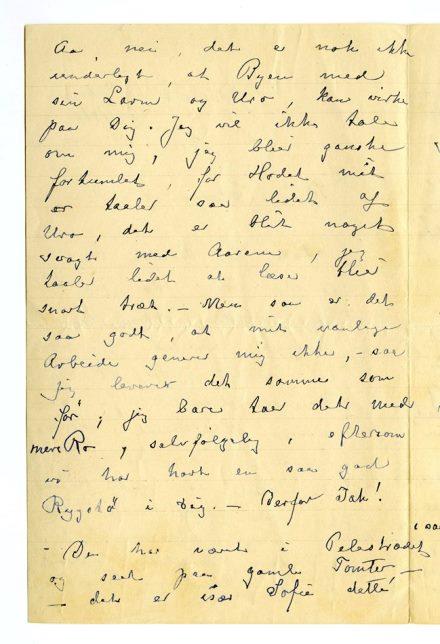 Aa, nei, det e nok ikke
underligt, at Byen med
sin Larm og Uro, kan virke
paa Dig. Jeg vil ikke tale
om mig, jeg blir ganske
fortumlet, for Hodet mit
er taaler saa lidet af
Uro, det er blit noget
svagt med Aarene, jeg
taaler lidet at læse blir
snart træt. – Men saa er det
saa godt, at mit vanlige
Arbeide generer mig ikke, – saa
jeg leverer det samme som
før, jeg bare taer det med
mere Ro, selvfølgelig, eftersom
vi har havt en saa god
i Dig. – Derfor Tak!
– Du har været i
og seet paa gamle Tomter –
– det er især Sofie dette